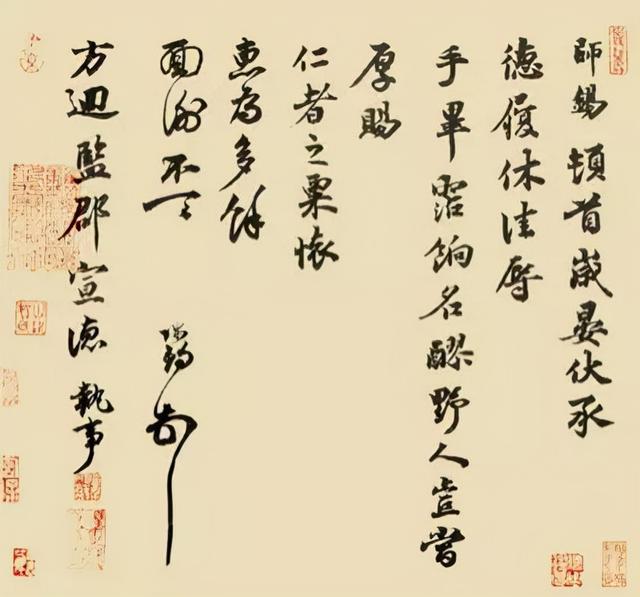 師錫頓首歲晏伏承
德履休佳辱
手畢霑餉名醪野人豈當
厚賜
仁者之粟懷
惠為多餘
面謝不一一 師錫頓首
方迴監郡宣德執事